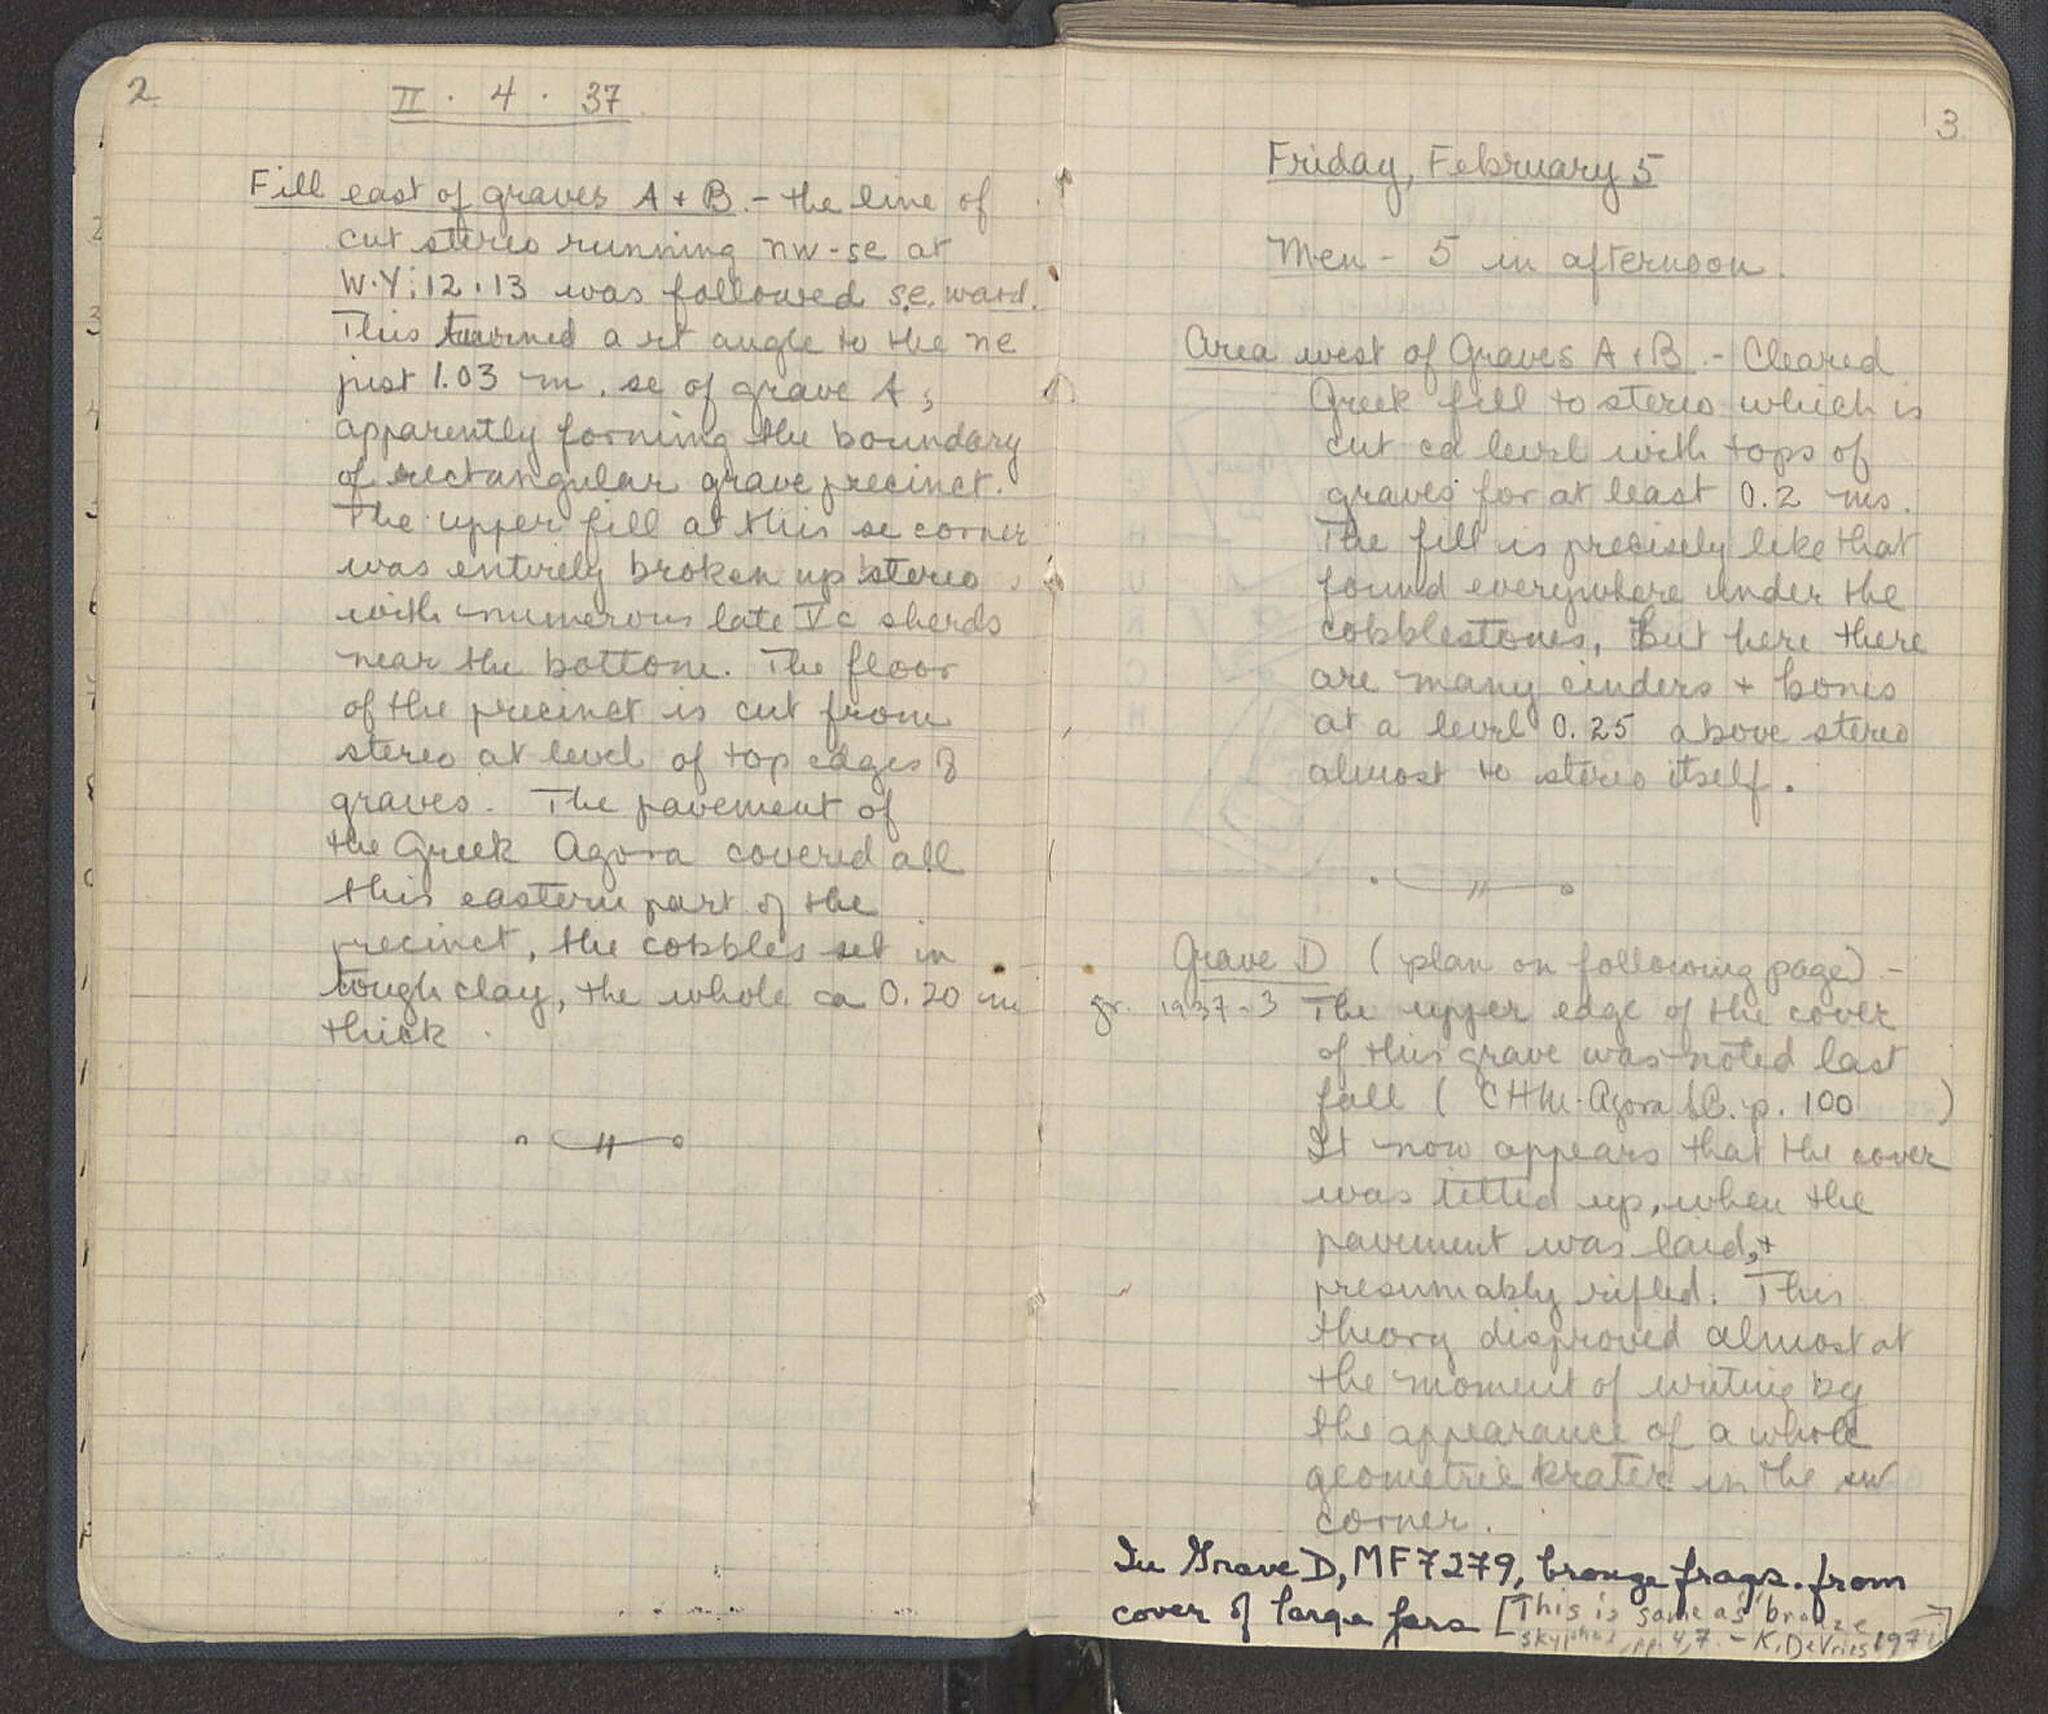 2
II · 4 · 37
Fill east of graves A + B. - the line of
cut stereo running nw-se at
W·Y; 12·13 was followed s.e. ward.
This turned a rt angle to the ne
just 1.03 m. se of grave A,
apparently forming the boundary
of rectangular grave precinct.
The upper fill at this se corner
was entirely broken up stereo
with numerous late Vc sherds
near the bottom. The floor
of the precinct is cut from
stereo at level of top edges of
graves. The pavement of
the Greek Agora covered all
this eastern part of the
precinct, the cobbles set in
tough clay, the whole ca 0.20 m
thick.
3.
Friday, February 5
Men - 5 in afternoon.
Area west of Graves A + B. - Cleared
Greek fill to stereo which is
cut ca level with tops of
graves for at least 0.2 ms.
The fill is precisely like that
found everywhere under the
cobblestones, But here there
are many cinders + bones
at a level 0.25 above stereo
almost to stereo itself.
Grave D (plan on following page) -
gr. 1937-3 The upper edge of the cover
of this grave was noted last
fall ( CHM. Agora p. 100 )
It now appears that the cover
was tilted up, when the
pavement was laid, +
presumably rifled. This
theory disproved almost at
the moment of writing by
the appearance of a whole
geometric krater in the sw
corner.
In Grave D, MF 7279, bronze frags. from
cover of large jars [This is same as bronze
skyphos, pp. 4, 7. - K. DeVries